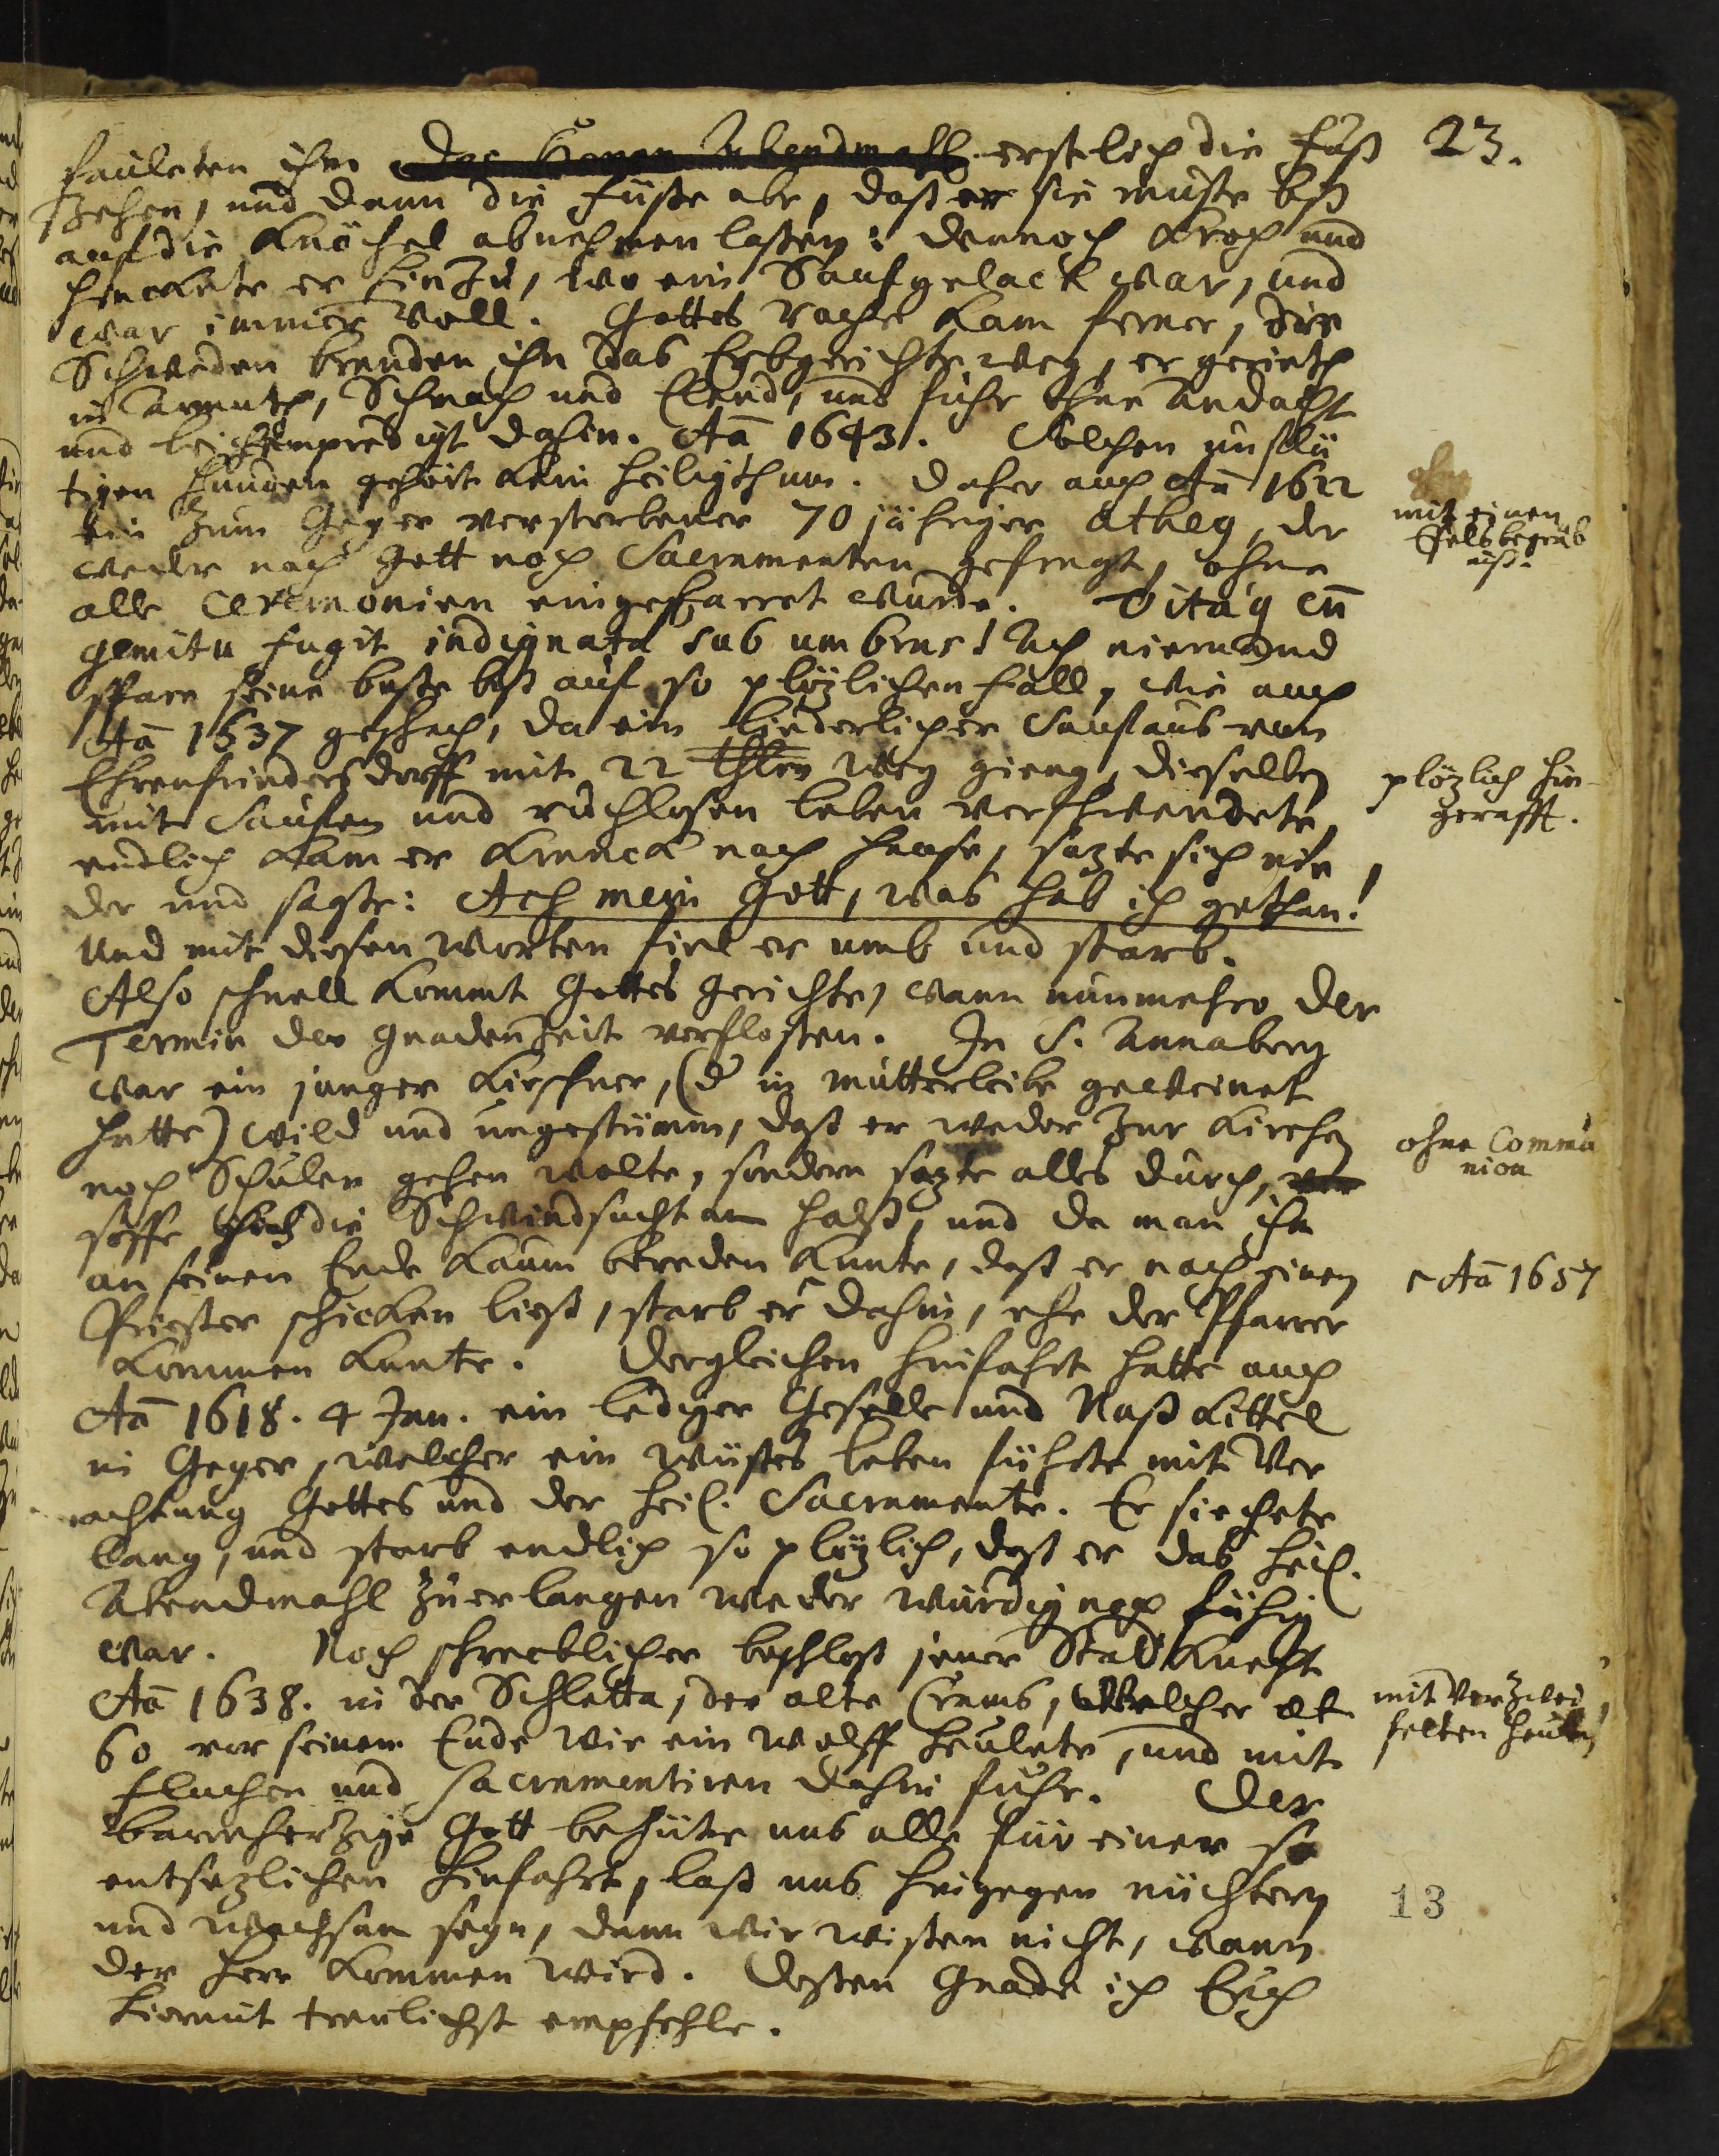 23.
fauleten ihm das Abendmahl erstlich die fuß
Zehen, und dann die füße abe, daß er sie muste biß
auf die Knöchel abnehmen laßen: dennoch kroch und
hinckete er hinzu, wo ein Saufgelack war, und
war immer voll. Gottes rache kam ferner, die
Schweden branden ihn das Erbgerichte weg, er gerieth
in Armuth, Schmach und Elend, und fuhr ohne Andacht
und leichenpredigt dahin. Aō 1643. Solchen unflä
tigen hunden gehört kein Heiligthum. Daher auch Aō 1622
ein zum Geyer verstorbener 70 jähriger Atheg, der
weder nach Gott noch Sacramenten gefragt, ohne
alle Ceremonien eingescharret wurde. Vitaq cū
gemitu fugit indignata sub umbras! Ach niemand
spare seine buße biß auf so plözlichen fall, wie auch
Aō 1637 geschach, da ein liederlicher Saufaus von
Ehrenfriedersdorff mit 22 thlrn weg gieng, dieselben
mit Saufen und ruchlosen leben verschwendete,
endlich kam er kranck nach hause, sazte sich nie
der und sagte: Ach mein Gott, was hab ich gethan!
Und mit diesen worten fiel er umb und starb.
Also schnell kommt Gottes gerichte, wann nunmehro der
Termin der gnadenzeit verfloßen. In S. Annaberg
war ein junger Kirschner, (d in mutterleibe geweinet
hatte) wild und ungestümm, daß er weder zur Kirchen
noch Schulen gehen wolte, sondern sazte alles durch,
soffe sich die Schwindsucht am halß, und da man ihn
an seinen Ende kaum bereden kunte, daß er nach einen
Priester schicken ließ, starb er dahin, ehe der Pfarrer
kommen kunte. Dergleichen hinfahrt hatte auch
Aō 1618. 4 Jan. ein lediger Geselle und Naßkittel
in Geyer, welcher ein wüstes leben führte mit Ver
achtung Gottes und der heil. Sacramente. Er siechete
lang, und starb endlich so plözlich, daß er das heil.
Abendmahl zu erlangen weder würdig noch fähig
war. Noch schrecklicher beschloß jener Stadknecht
Aō 1638. in der Schletta, der alte Crams, welcher æt
60 vor seinem Ende wie ein wolff heulete, und mit
fluchen und sacramentiren dahin fuhr. Der
barmherzige Gott behüte uns alle für einer so
entsezlichen hinfahrt, laß uns hingegen nüchtern
und wachsam seyn, dann wir wißen nicht, wann
der herr kommen wird. Deßen Gnade ich Euch
hiermit treulichst empfehle.
mit einen
Eselsbegräb
niß.
plözlich hin-
gerafft.
ohne Commu
nion
Aō 1657
mit verzwei
felten heulen
13